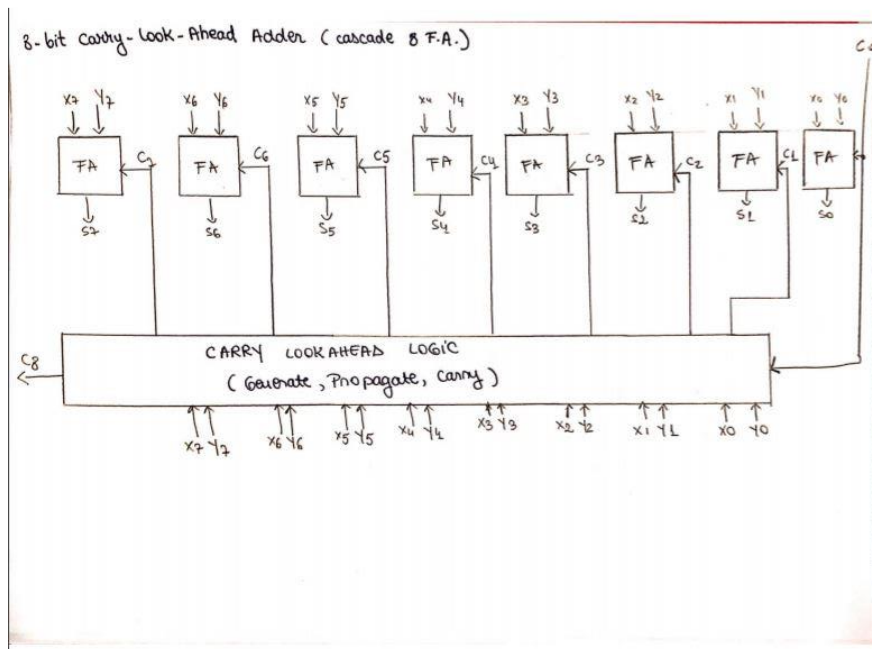 8-bit Carry-Look-Ahead Adder (cascade 8 F.A.)
X7 Y7 X6 Y6 X5 Y5 X4 Y4 X3 Y3 X2 Y2 X1 Y1 X0 Y0
FA C7 FA C6 FA C5 FA C4 FA C3 FA C2 FA C1 FA
S7 S6 S5 S4 S3 S2 S1 S0
C8
CARRY LOOKAHEAD LOGIC
(Generate, Propagate, Carry)
X7 Y7 X6 Y6 X5 Y5 X4 Y4 X3 Y3 X2 Y2 X1 Y1 X0 Y0